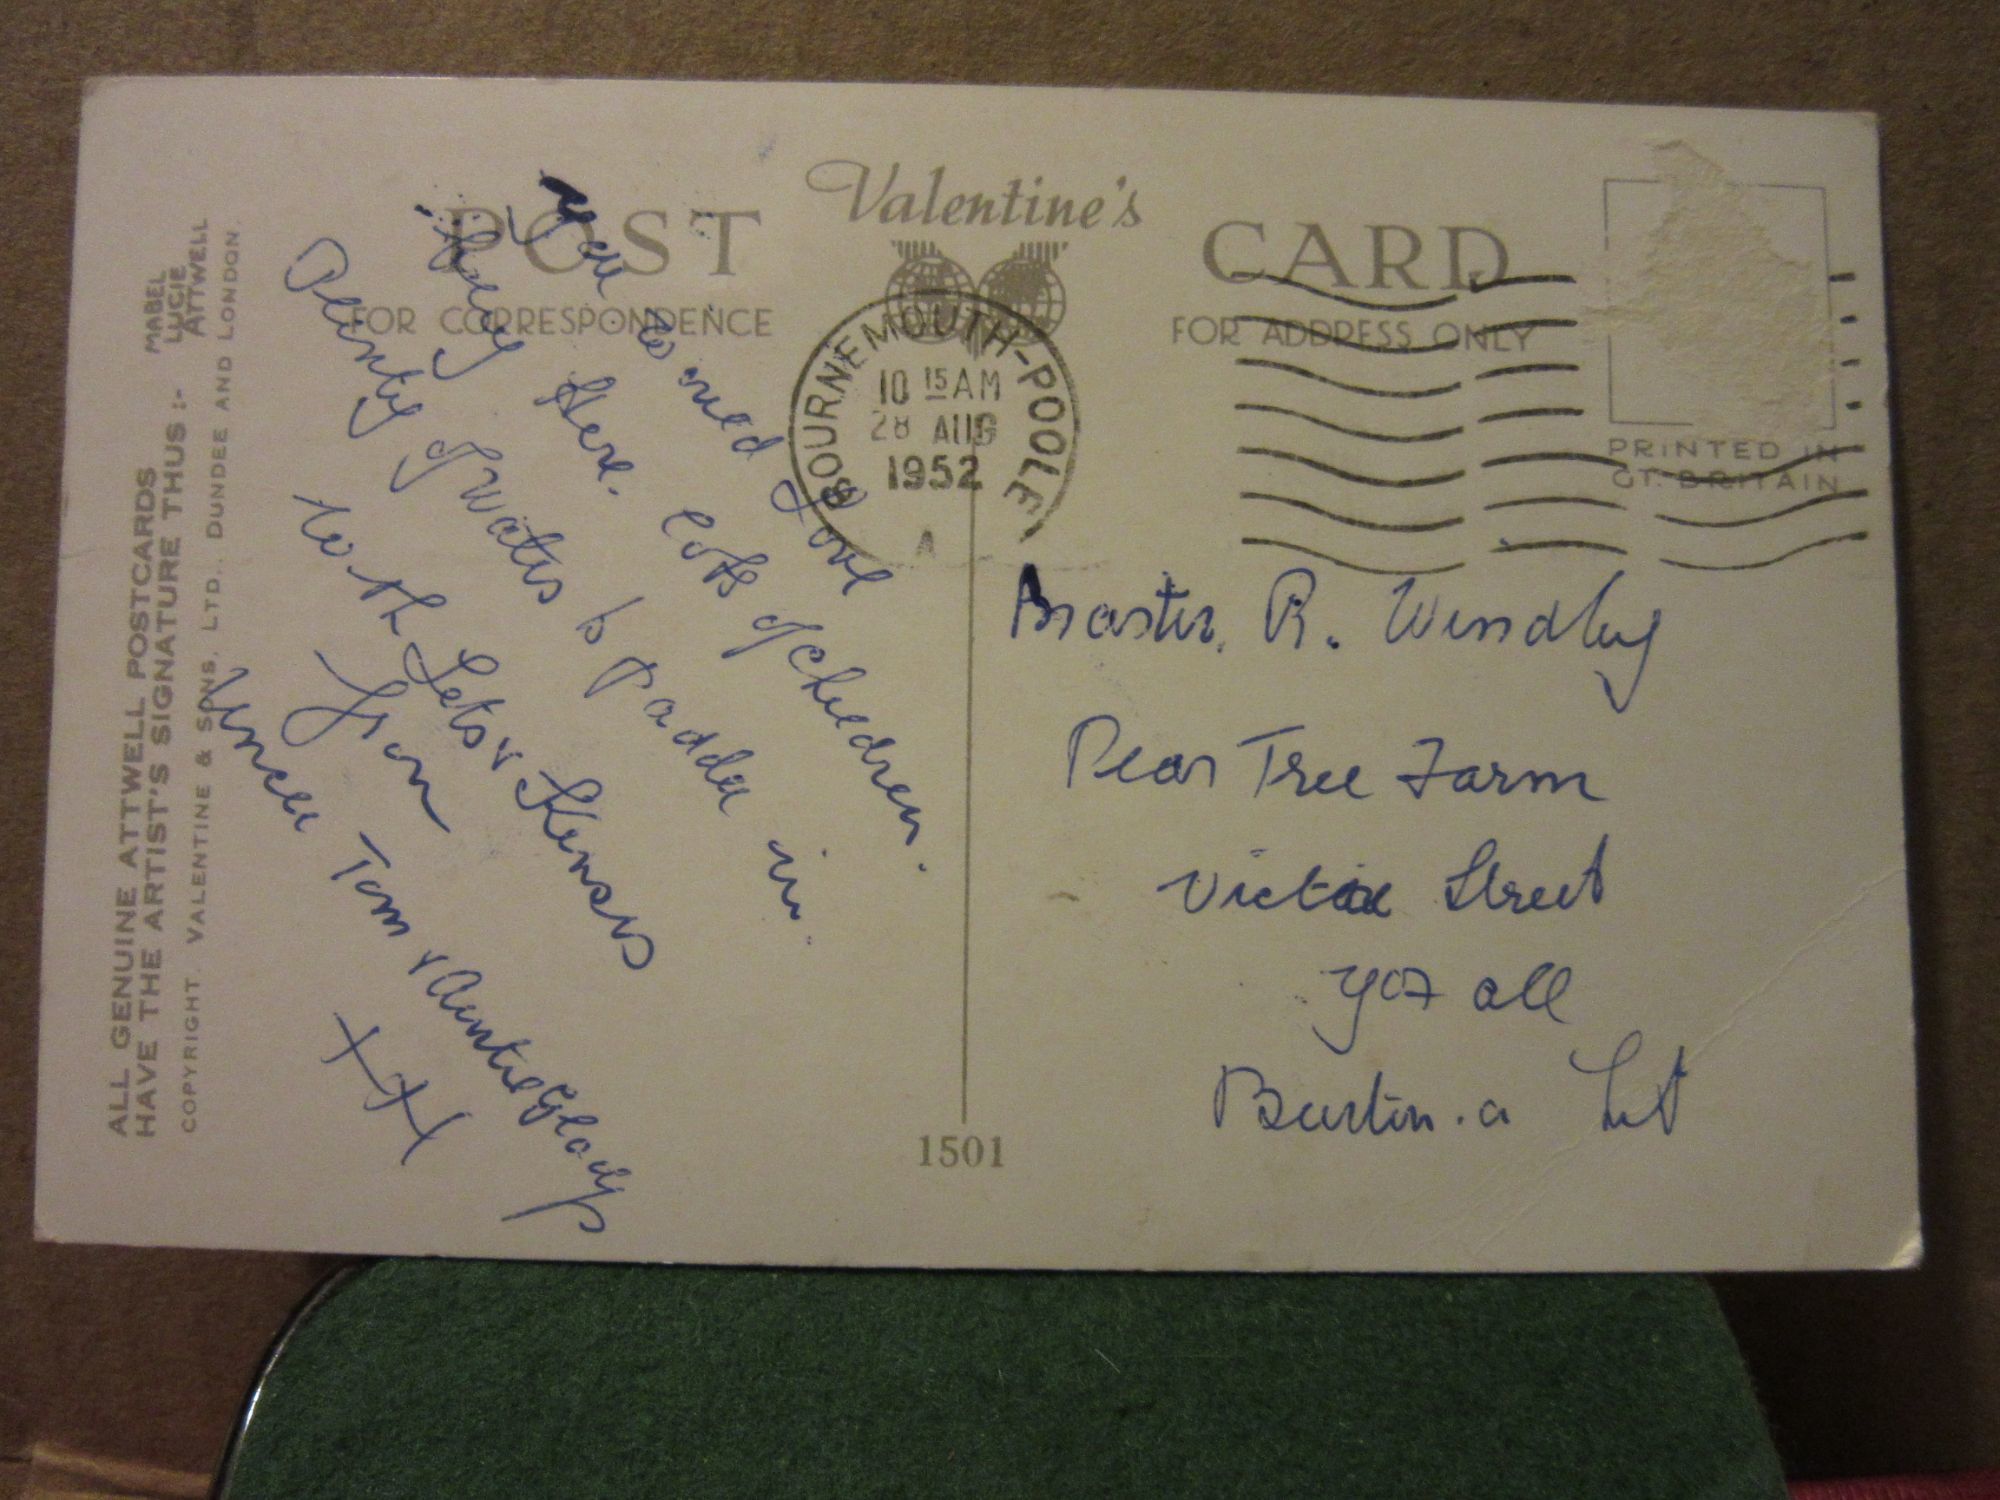 Valentine's
POST CARD
FOR CORRESPONDENCE
FOR ADDRESS ONLY
PRINTED IN
GT. BRITAIN
BOURNEMOUTH-POOLE
10 15 AM
28 AUG
1952
A
You would love
being here. Lots of children.
Plenty of water to paddle in.
With Love &
from
Uncle Tom & Auntie Gladys
XXX
Master. R. Windley
Pear Tree Farm
Street
Yoxall
Burton.
1501
ALL GENUINE ATTWELL POSTCARDS
HAVE THE ARTIST'S SIGNATURE THUS :-
MABEL
LUCIE
ATTWELL
COPYRIGHT. VALENTINE & SONS, LTD., DUNDEE AND LONDON.